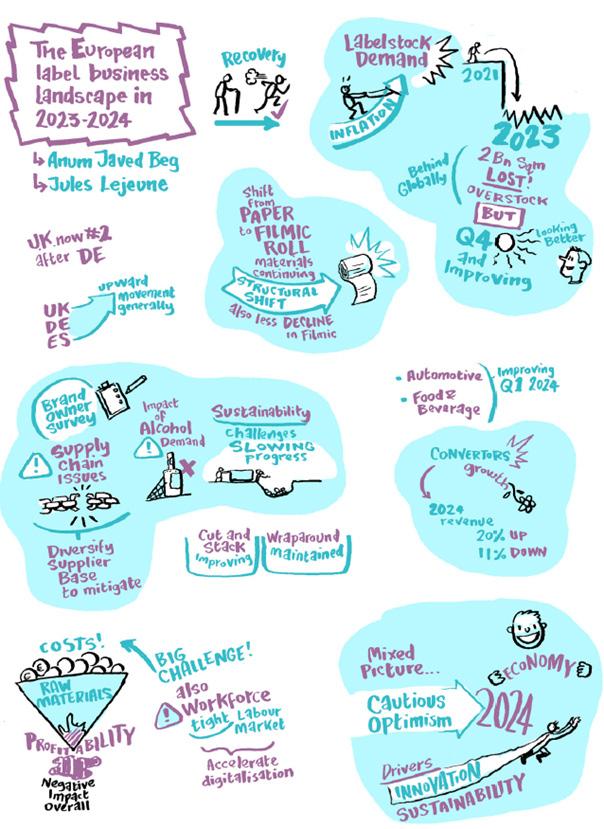 The European
label business
landscape in
2023-2024
↳ Anum Javed Beg
↳ Jules Lejeune
Recovery
Labelstock
Demand
INFLATION
2021
2023
2 Bn Sqm
LOST!
OVERSTOCK
BUT
Q4
and
Improving
Behind
Globally
Looking
Better
UK now #2
after DE
UK
DE
ES
upward
movement
generally
Shift
from
PAPER
to FILMIC
ROLL
materials
continuing
STRUCTURAL
SHIFT
also less DECLINE
in Filmic
Brand
owner
survey
Supply
chain
issues
Diversify
Supplier
Base
to mitigate
Impact
of
Alcohol
Demand
Sustainability
challenges
SLOWING
progress
Cut and
Stack
improving
Wraparound
maintained
• Automotive
• Food &
Beverage
Improving
Q1 2024
CONVERTORS
growth
2024
revenue
20% UP
11% DOWN
COSTS!
RAW
MATERIALS
PROFITABILITY
Negative
Impact
overall
BIG
CHALLENGE!
also
Workforce
tight Labour
Market
Accelerate
digitalisation
Mixed
Picture...
Cautious
Optimism
2024
ECONOMY
Drivers
INNOVATION
SUSTAINABILITY